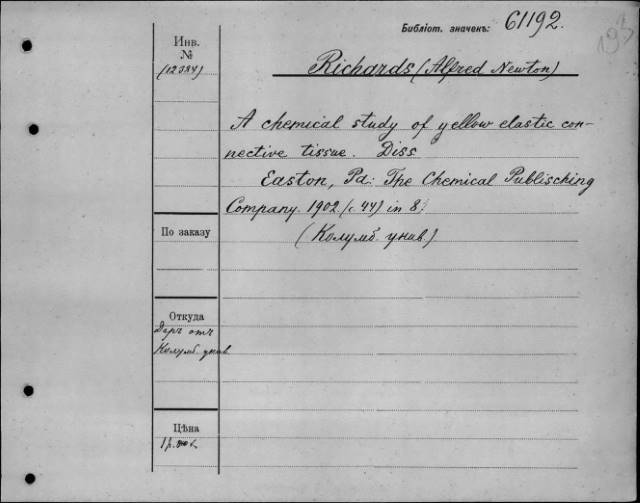 Библіот. значекъ: 61192.
193
Инв.
№
(12384)
Richards (Alfred Newton)
A chemical study of yellow elastic con-
nective tissue. Diss
Easton, Pa: The Chemical Publisching
Company. 1902 (с. 44) in 8.
(Колумб. унив.)
По заказу
Откуда
Даръ отъ
Колумб. унив
Цѣна
1 р.